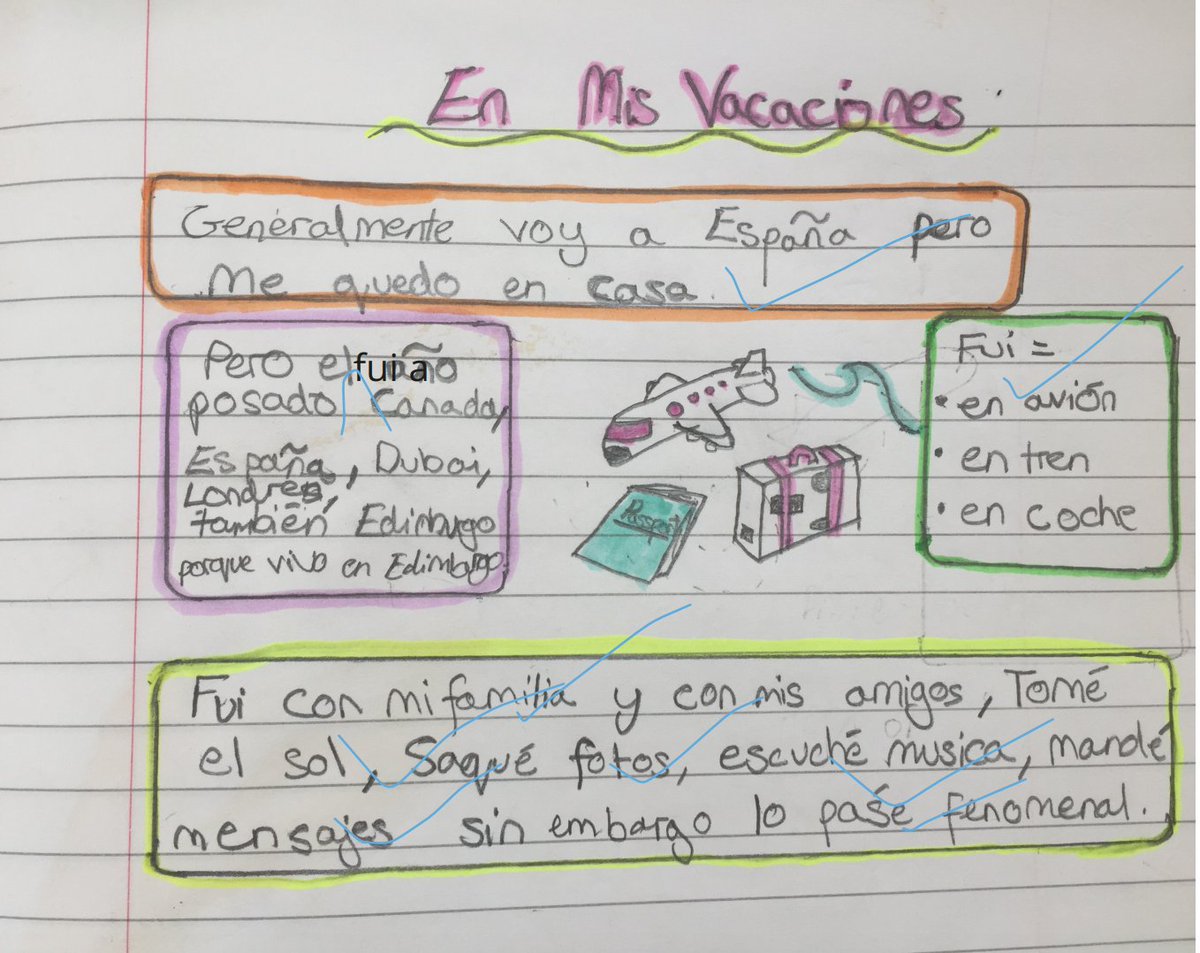 En Mis Vacaciones.
Generalmente voy a España pero
me quedo en casa.
Pero el año
fui a
posado Canada,
España, Dubai,
Londres,
también Edimburgo
porque vivo en Edimburgo.
Passport
Fui =
• en avión
• en tren
• en coche
Fui con mi familia y con mis amigos, Tomé
el sol, Saqué fotos, escuché musica, mandé
mensajes sin embargo lo paśe fenomenal.